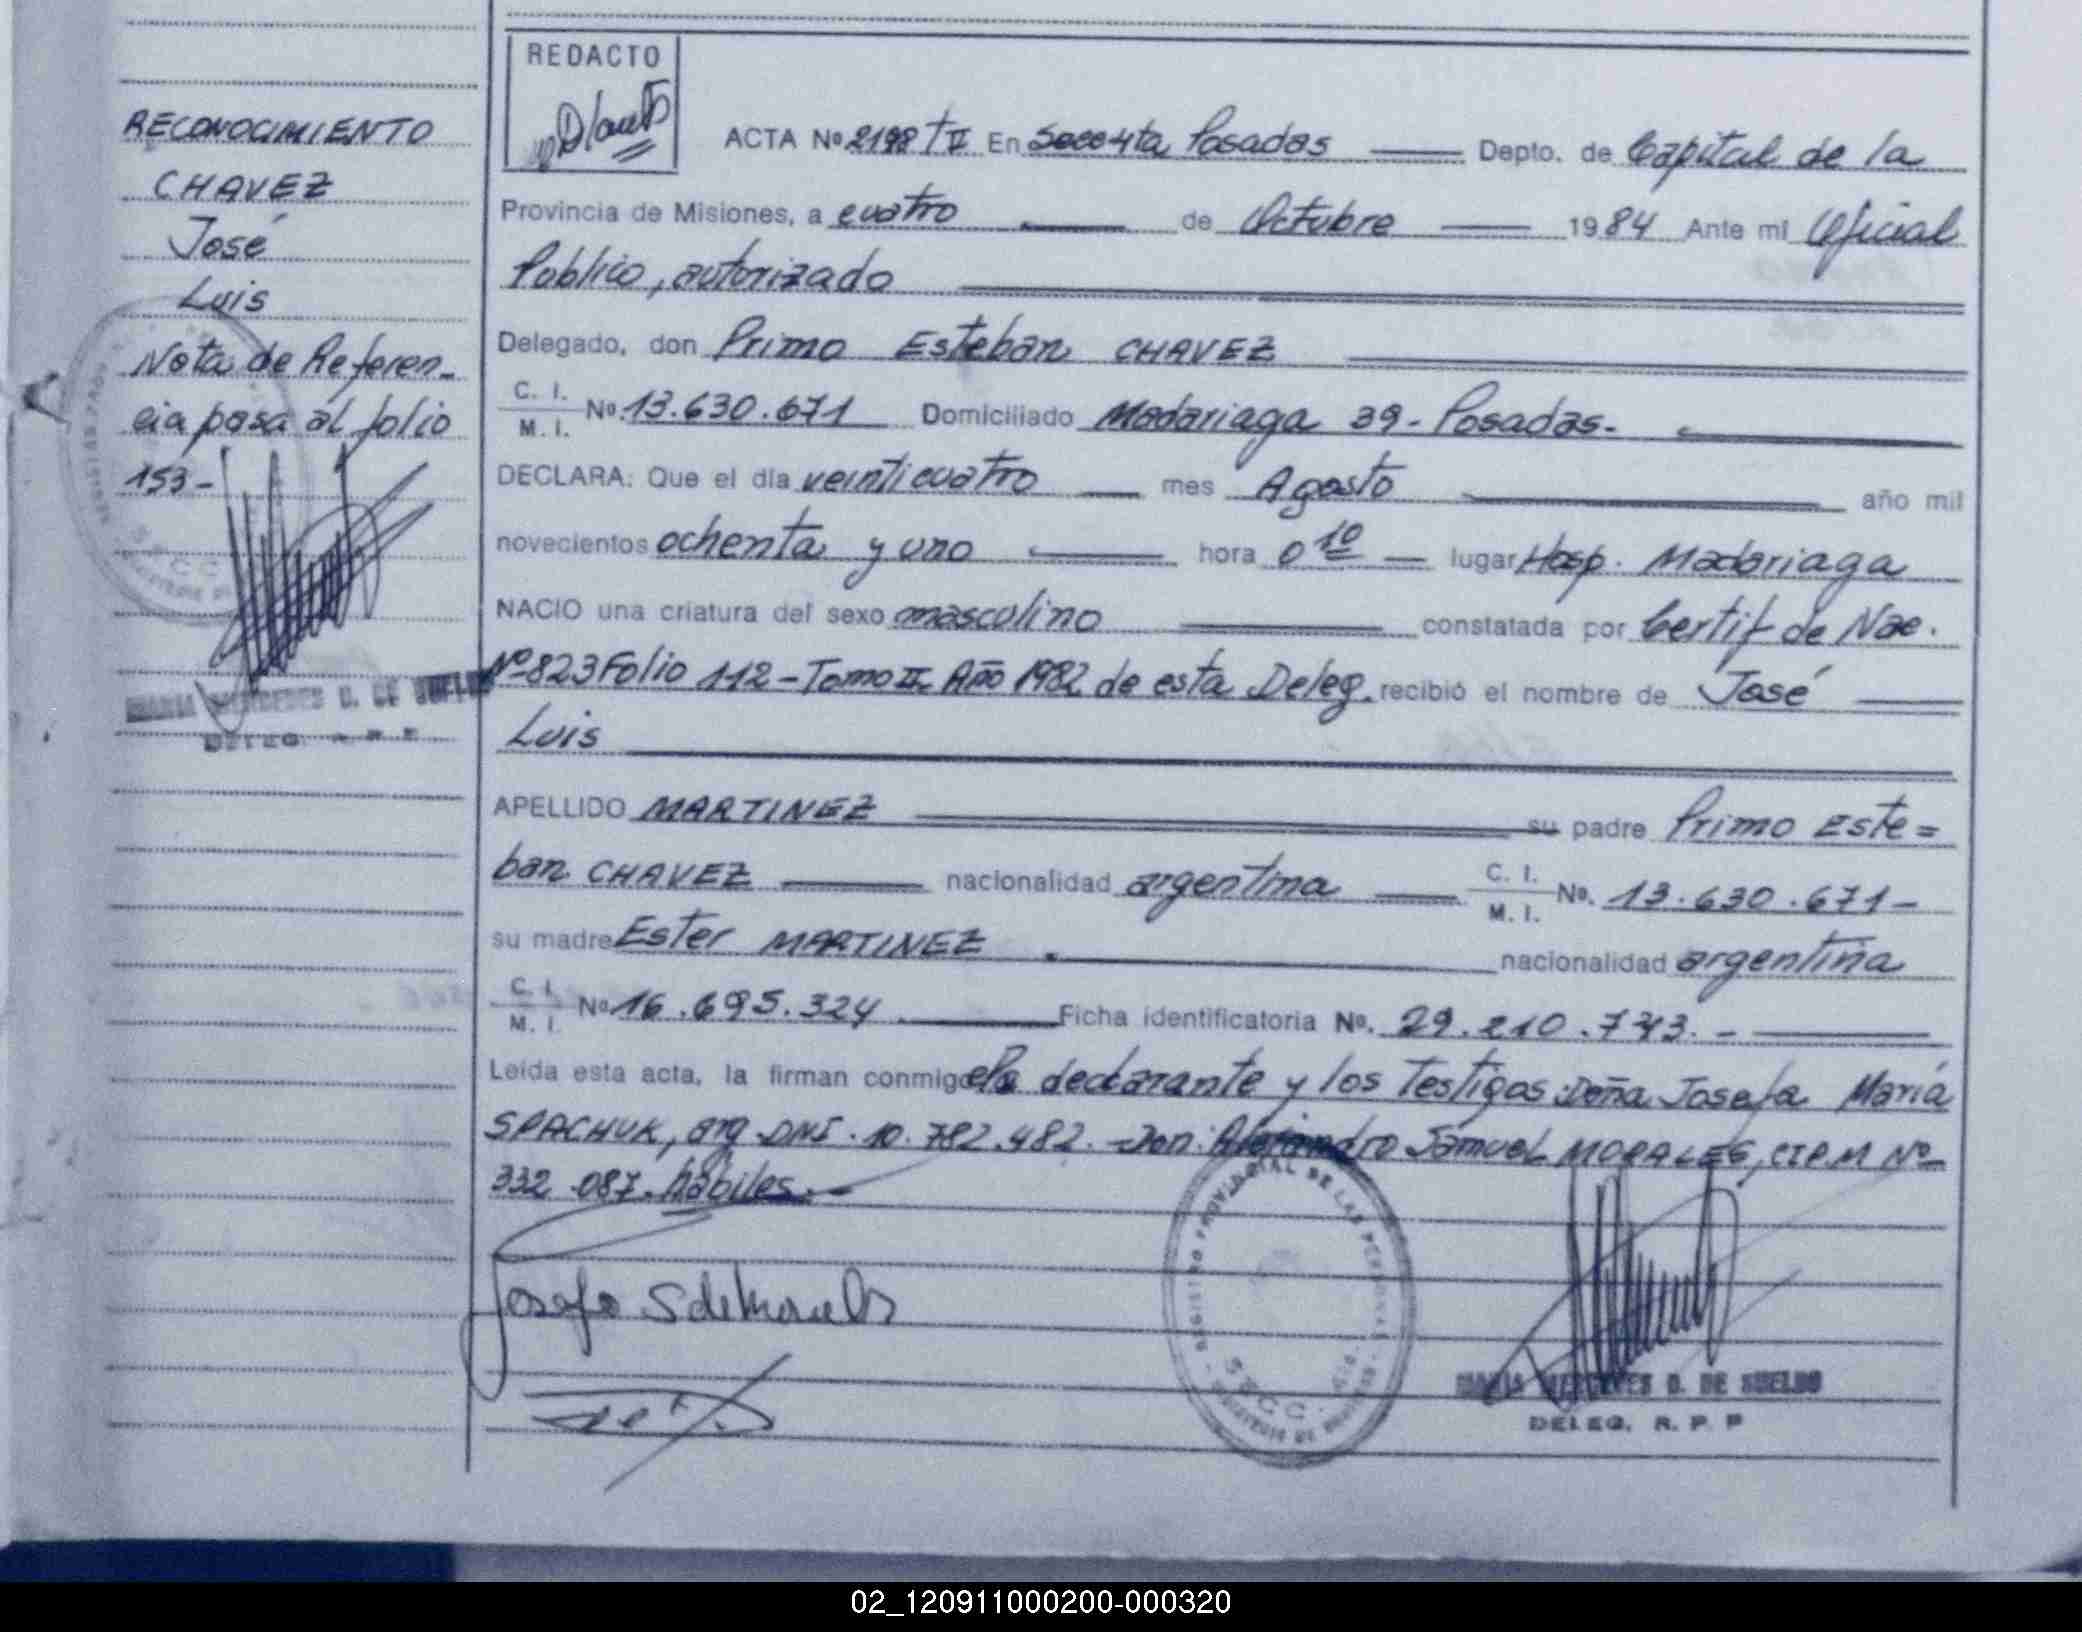 RECONOCIMIENTO
CHAVEZ
José
Luis
Nota de Referen-
cia pasa al folio
153-
MARIA MERCEDES D. DE SUELDO
DELEG. R. P. P.
REDACTO
ACTA Nº 2198 TII En Posadas Depto. de Capital de la
Provincia de Misiones, a cuatro de Octubre 1984 Ante mi Oficial
Público, autorizado
Delegado, don Primo Esteban CHAVEZ
C. I.
M. I. Nº. 13.630.671 Domiciliado Madariaga 39- Posadas-
DECLARA: Que el día veinticuatro mes Agosto año mil
novecientos ochenta y uno hora 0 10 lugar Hosp. Madariaga
NACIO una criatura del sexo masculino constatada por Certif de Nac.
Nº 823 Folio 112-Tomo II Año 1982 de esta Deleg. recibió el nombre de José
Luis
APELLIDO MARTINEZ su padre Primo Este=
ban CHAVEZ nacionalidad argentina C. I.
M. I. Nº. 13.630.671-
su madre Ester MARTINEZ nacionalidad argentina
C. I.
M. I. Nº 16.695.324 Ficha identificatoria Nº. 29.210.743.-
Leída esta acta, la firman conmigo declarante y los Testigos: Doña Josefa María
SPACHUK, arg DNI. 10.782.482.-Don: Alejandro Samuel MORALES, CIPM Nº
332.087. hábiles.-
Josefa S de Morales
REGISTRO PROVINCIAL DE LAS PERSONAS
MARIA MERCEDES D. DE SUELDO
DELEG. R. P. P
02_120911000200-000320